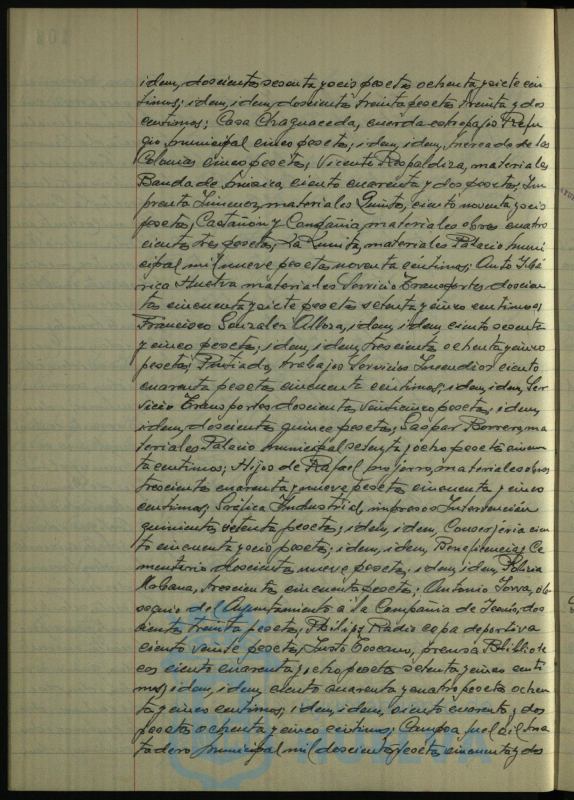 idem, doscientas sesenta y seis pesetas ochenta y siete cén
timos; idem, idem, doscientas treinta pesetas treinta y dos
centimos; Casa Chaguaceda, cuerda estropajo Refu
gio municipal cinco pesetas; idem, idem, Mercado de las
Colonias cinco pesetas; Vicente Respaldiza, materiales
Banda de Música, ciento cuarenta y dos pesetas; Im
prenta Jimenez, materiales Quintas, ciento noventa y seis
pesetas; Castañón y Compañia, materiales obras cuatro
cientas tres pesetas; La Lunita, materiales Palacio muni
cipal mil nueve pesetas noventa céntimos; Auto Ibé
rica Huelva materiales Servicio Transportes doscien
tas cincuenta y siete pesetas setenta y cinco centimos;
Francisco Gonzalez idem, idem ciento sesenta
y cinco pesetas; idem, idem, trescientas ochenta y cinco
pesetas; trabajos Servicios Incendios ciento
cuarenta pesetas cincuenta céntimos; idem, idem, Ser
vicio Transportes doscientas veinticinco pesetas; idem,
idem, doscientas quince pesetas; Gaspar Borrero, ma
teriales Palacio municipal setenta y ocho pesetas cincuen
ta centimos; Hijos de Rafael Mojarro, materiales obras
trescientas cuarenta y nueve pesetas cincuenta y cinco
centimos; Gráfica Industrial, impresos Intervención
quinientas setenta pesetas; idem, idem, Conserjería cien
to cincuenta y seis pesetas; idem, idem, Beneficencia y Ce
menterio doscientas nueve pesetas; idem, idem, Policia
Urbana, trescientas cincuenta pesetas; Antonio ob
sequio del Ayuntamiento á la Compañia de Teatro, dos
cientas treinta pesetas; Philips Radio copa deportiva
ciento veinte pesetas; Justo Toscano, prensa Bibliote
cas ciento cuarenta y ocho pesetas setenta y cinco centi
mos; idem, idem, ciento cuarenta y cuatro pesetas ochen
ta y cinco centimos; idem, idem, ciento cuarenta y dos
pesetas ochenta y cinco céntimos; Campsa, fuel oil Ma
tadero municipal mil doscientas pesetas cincuenta y dos
HUELVA